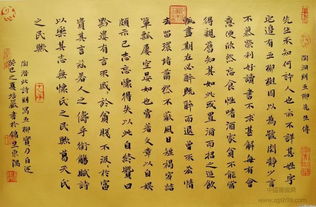 陶淵明五柳先生傳
先生不知何許人也亦不詳其姓字
宅邊有五柳樹因以為號焉閑靜少言
不慕榮利好讀書不求甚解每有會
意便欣然忘食性嗜酒家貧不能常
得親舊知其如此或置酒而招之造飲
輒盡期在必醉既醉而退曾不吝情
去留環堵蕭然不蔽風日短褐穿結
簞瓢屢空晏如也常著文章以自娛
頗示己志忘懷得失以此自終贊曰
黔婁有言不戚戚於貧賤不汲汲於富
貴其言茲若人之儔乎銜觴賦詩
以樂其志無懷氏之民歟葛天氏
之民歟
陶潛此詩則寫五柳實乃自述
癸巳之夏書於錦里東隅